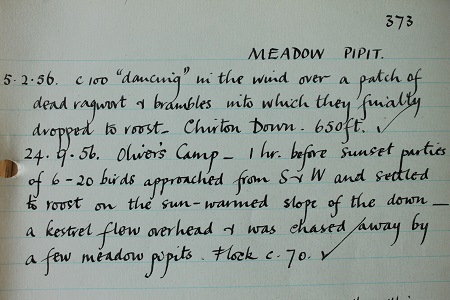 373
MEADOW PIPIT.
5.2.56. c 100 "dancing" in the wind over a patch of
dead ragwort & brambles into which they finally
dropped to roost - Chirton Down. 650ft. ✓
24.9.56. Oliver's Camp - 1 hr. before sunset parties
of 6-20 birds approached from S & W and settled
to roost on the sun-warmed slope of the down -
a kestrel flew overhead & was chased away by
a few meadow pipits. Flock c. 70. ✓